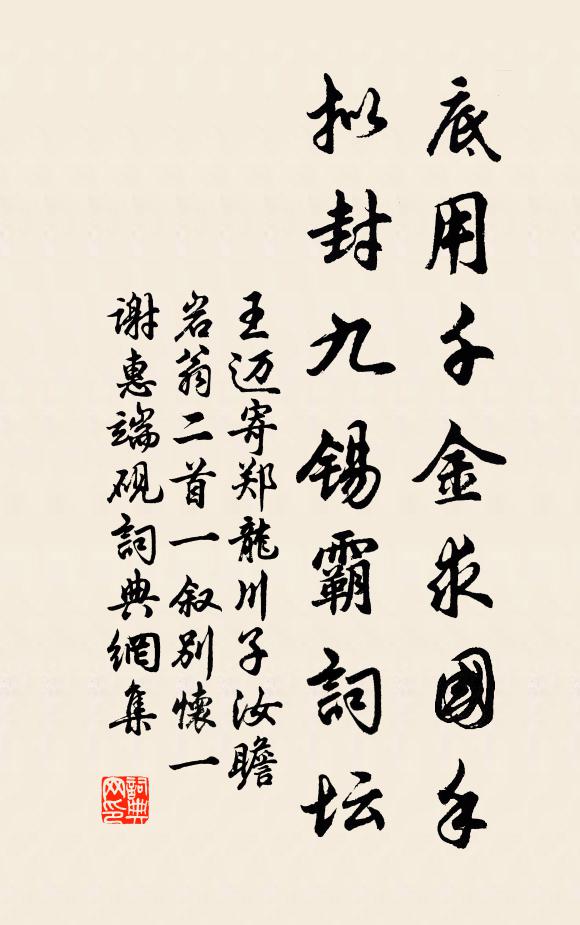 底用千金求國手
拟封九锡霸詞坛
王迈寄郑龍川子汝瞻
岩翁二首一叙别懷一
谢惠端砚詞典網集
詞典网印